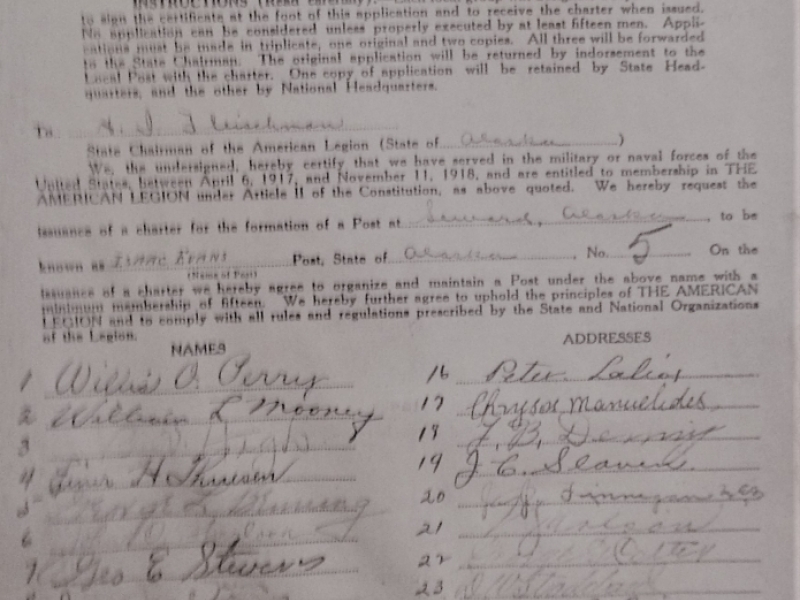 INSTRUCTIONS (Read carefully):
to sign the certificate at the foot of this application and to receive the charter when issued.
No application can be considered unless properly executed by at least fifteen men. Appli-
cations must be made in triplicate, one original and two copies. All three will be forwarded
to the State Chairman. The original application will be returned by indorsement to the
Local Post with the charter. One copy of application will be retained by State Head-
quarters, and the other by National Headquarters.
To
State Chairman of the American Legion (State of Alaska)
We, the undersigned, hereby certify that we have served in the military or naval forces of the
United States, between April 6, 1917, and November 11, 1918, and are entitled to membership in THE
AMERICAN LEGION under Article II of the Constitution, as above quoted. We hereby request the
issuance of a charter for the formation of a Post at Seward, Alaska, to be
known as Isaac Evans Post, State of Alaska, No. 5 On the
(Name of Post)
issuance of a charter we hereby agree to organize and maintain a Post under the above name with a
minimum membership of fifteen. We hereby further agree to uphold the principles of THE AMERICAN
LEGION and to comply with all rules and regulations prescribed by the State and National Organizations
of the Legion.
NAMES
ADDRESSES
1 Willis O. Perry
2 William L Mooney
3
4 H.
5
6
7 Geo E Stevens
16 Peter
17 Chrysos Manuelides
18 J. B. Denny
19 J. C. Slaven
20 Finnegan
21
22
23